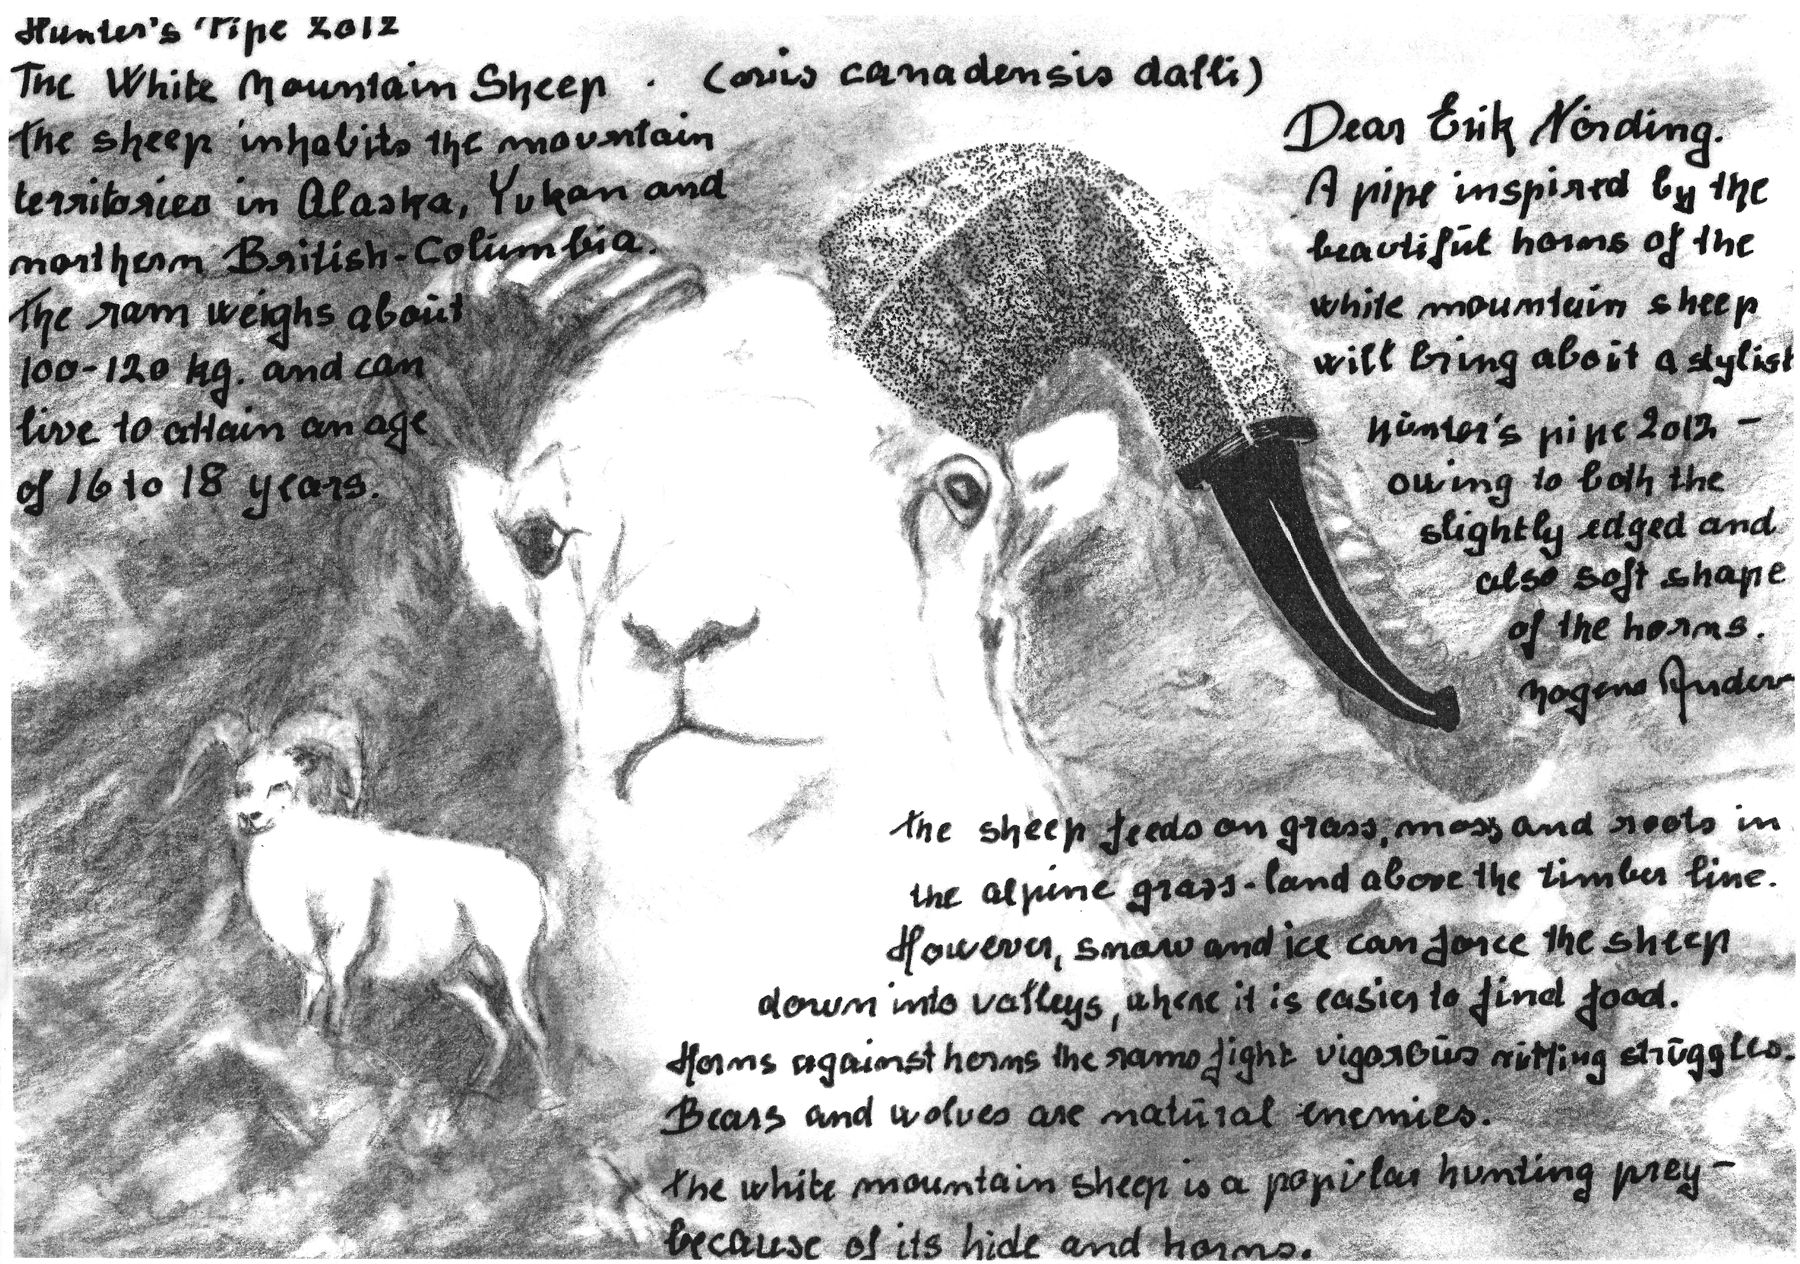 Hunter's Pipe 2012
The White Mountain Sheep . (ovis canadensis dalli)
The sheep inhabits the mountain
territories in Alaska, Yukan and
northern British-Columbia.
The ram weighs about
100-120 kg. and can
live to attain an age
of 16 to 18 years.
Dear Erik Nørding.
A pipe inspired by the
beautiful horns of the
white mountain sheep
will bring aboit a stylist
hunter's pipe 2012 -
owing to both the
slightly edged and
also soft shape
of the horns.
Mogens Ander
The sheep feeds on grass, moss and roots in
the alpine grass-land above the timber line.
However, snow and ice can force the sheep
down into valleys, where it is easier to find food.
Horns against horns the rams fight vigoroüs rutting strüggles.
Bears and wolves are natüral enemies.
The white mountain sheep is a popular hunting prey -
because of its hide and horns.